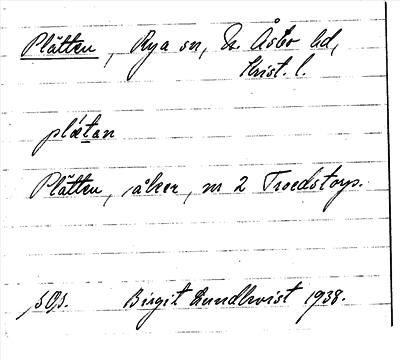 Plätten, Rya sn, N. Åsbo hd,
Krist. l.
plætan
Plätten, åker, nr 2 Troedstorp.
Birgit Lundkvist 1938.